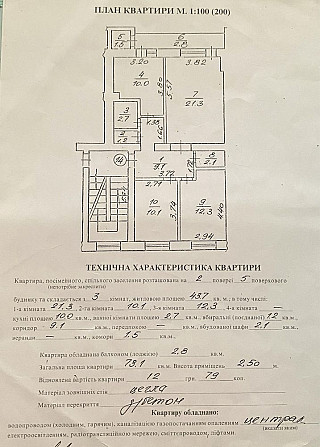 ПЛАН КВАРТИРИ М. 1:100 (200)
5
1.5
6
2.8
3.20
3.82
4
10.0
3.80
5.57
7
21.3
3
2.7
1.38
2
1.2
1.66
14
1
9.1
3.72
1.72
8
2.1
2.71
10
10.1
3.74
9
12.3
4.40
2.94
ТЕХНІЧНА ХАРАКТЕРИСТИКА КВАРТИРИ
Квартира, посімейного, спільного заселення розташована на 2 поверсі 5 поверхового
(непотрібне закреслити)
будинку та складається з 3 кімнат, житловою площею 43.7 кв.м., в тому числі:
1-а кімната 21.3, 2-га кімната 10.1, 3-я кімната 12.3, 4-а кімната —
кухні площею 10.0 кв.м., ванної кімнати площею 2.7 кв.м., вбиральні (поєднаної) 1.2 кв.м.,
коридор 9.1 кв.м., передпокою — кв.м., вбудованої шафи 2.1 кв.м.,
веранди — кв.м., комори 1.5 кв.м.
Квартира обладнана балконом (лоджією) 2.8 кв.м.
Загальна площа квартири 73.1 кв.м. Висота приміщень 2.50 м.
Відновлена вартість квартири 12 грн. 79 коп.
Матеріал зовнішніх стін цегла
Матеріал перекриття з/бетон
Квартиру обладнано:
водопроводом (холодним, гарячим), каналізацією газопостачанням опаленням централ.
(вказати яким)
електроосвітленням, радіотрансляційною мережею, сміттєпроводом, ліфтами